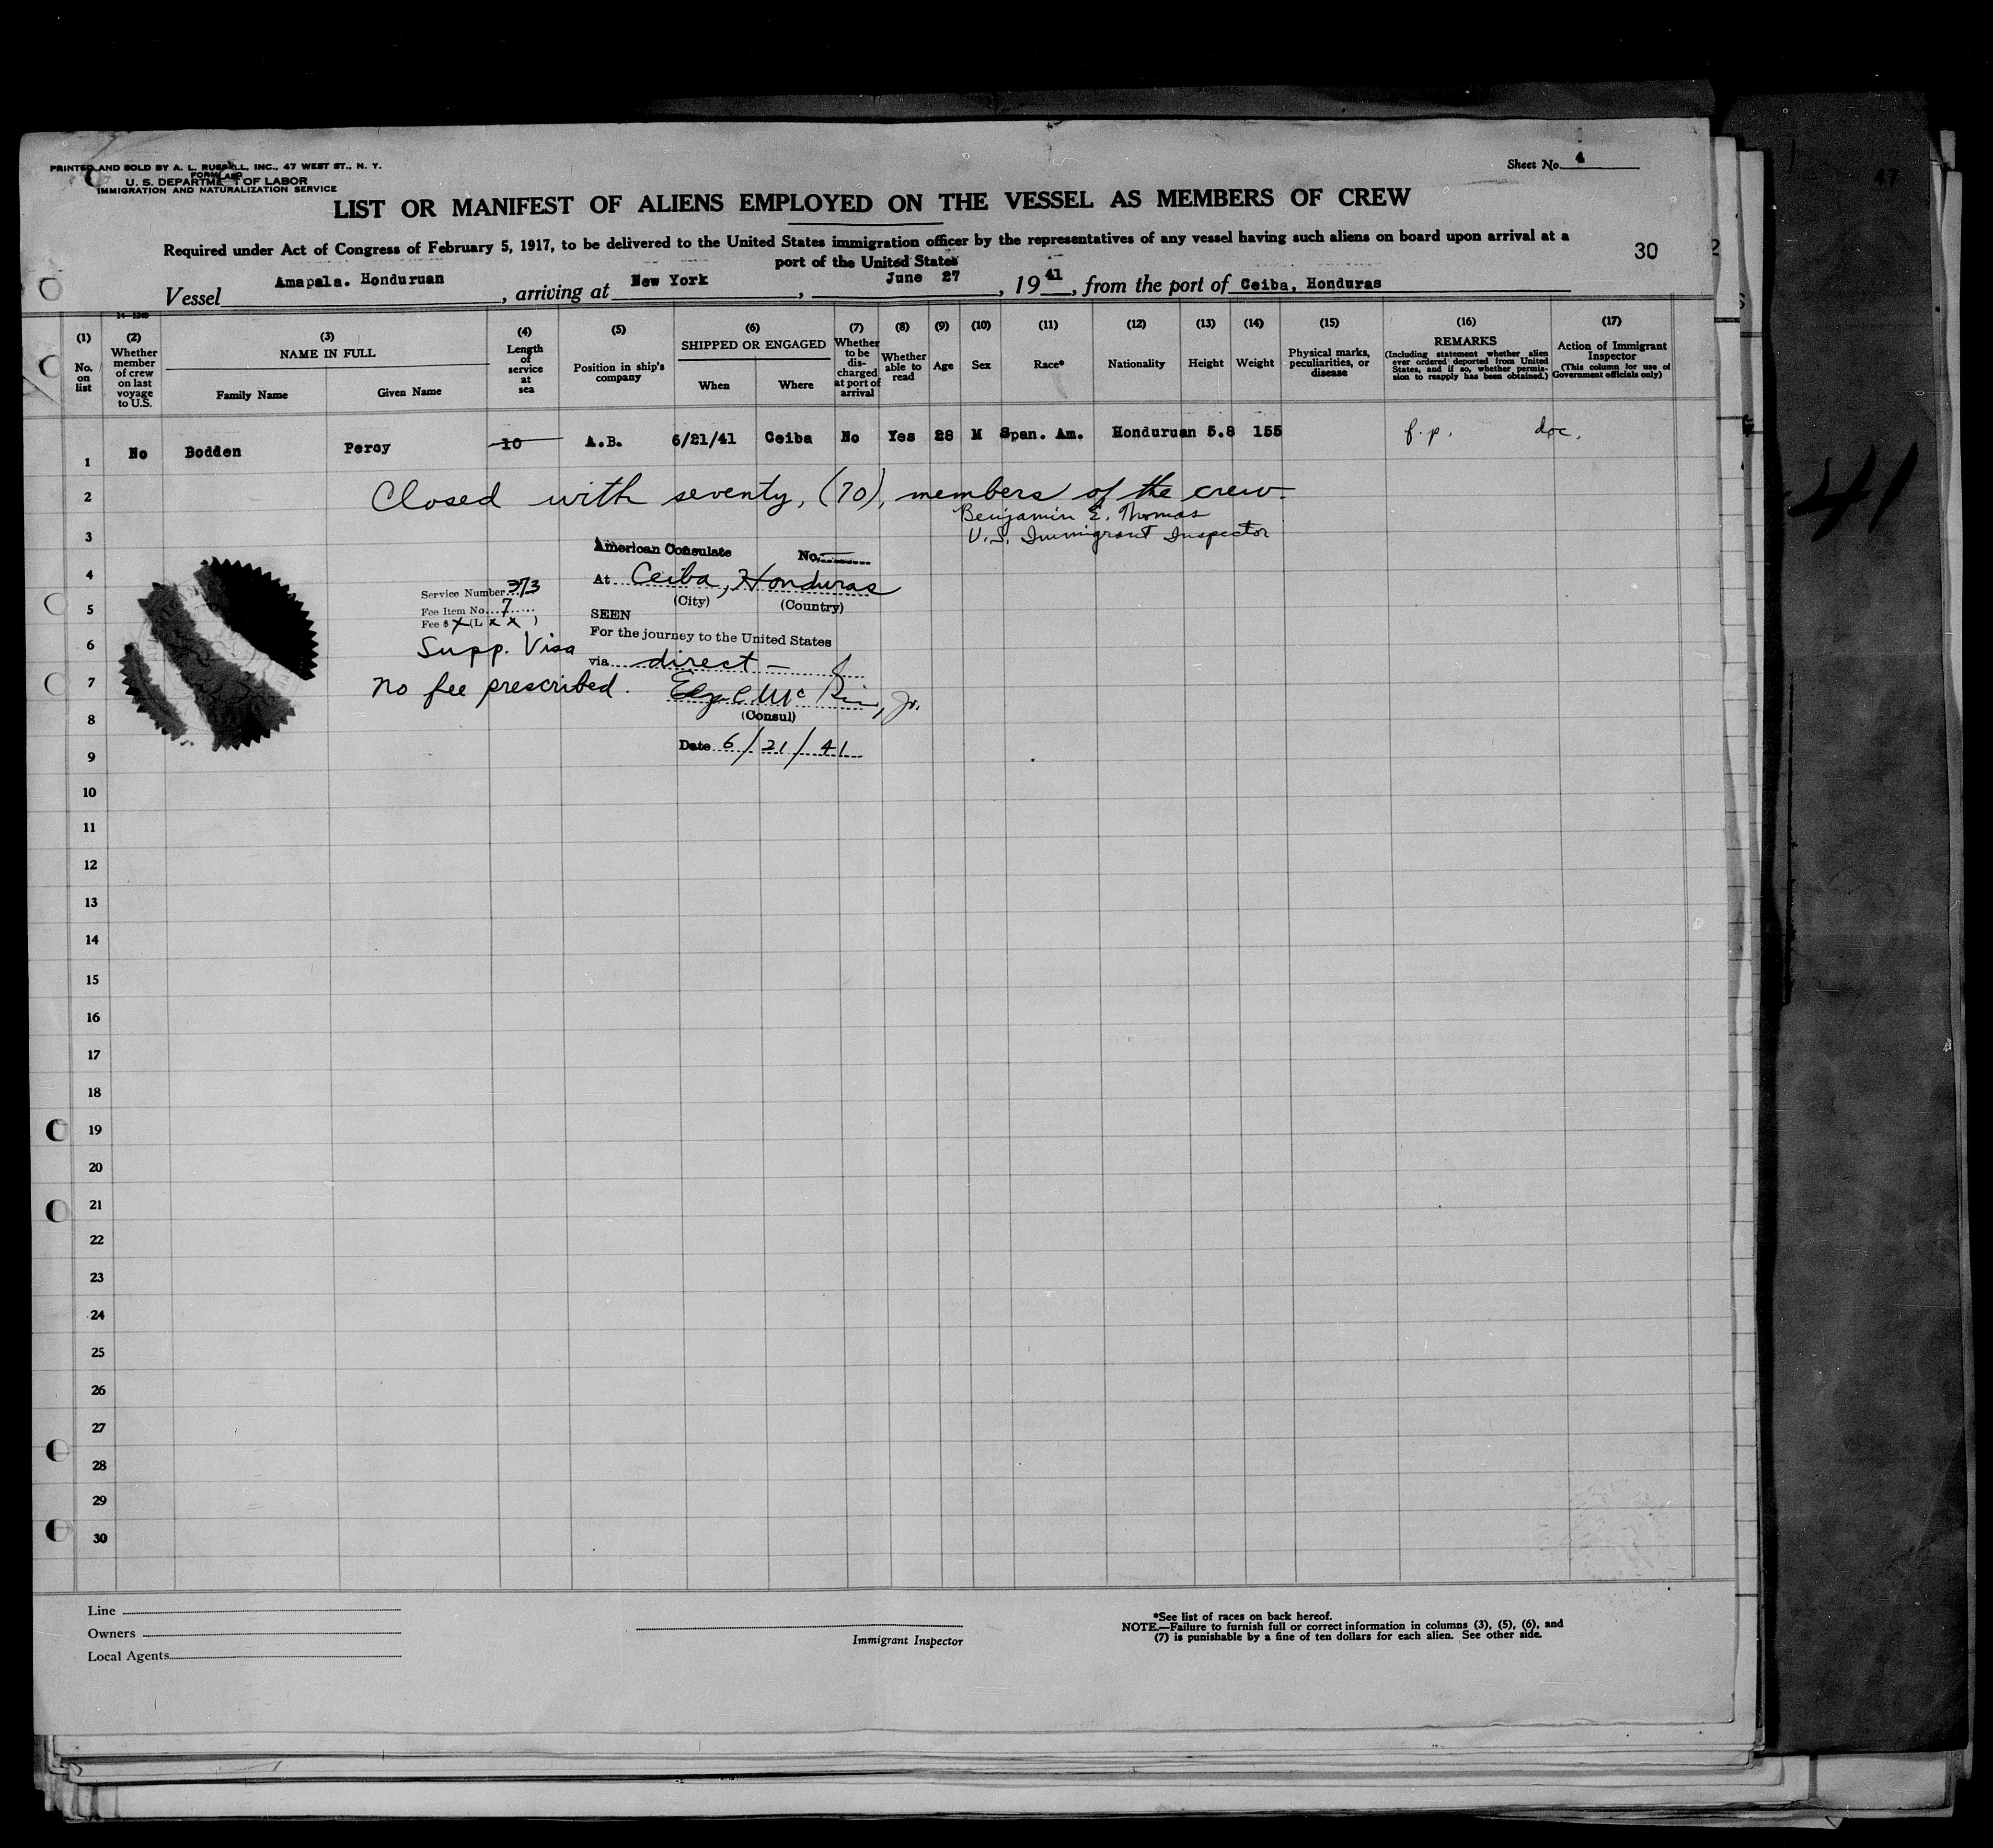 PRINTED AND SOLD BY A. L. RUSSELL, INC., 47 WEST ST., N. Y.
U. S. DEPARTMENT OF LABOR
IMMIGRATION AND NATURALIZATION SERVICE
Sheet No. 4
LIST OR MANIFEST OF ALIENS EMPLOYED ON THE VESSEL AS MEMBERS OF CREW
Required under Act of Congress of February 5, 1917, to be delivered to the United States immigration officer by the representatives of any vessel having such aliens on board upon arrival at a
port of the United States
30
Vessel Amapala. Honduruan, arriving at New York, June 27, 1941, from the port of Ceiba, Honduras
(1) No. on list
(2) Whether member of crew on last voyage to U.S.
(3) NAME IN FULL
Family Name
Given Name
(4) Length of service at sea
(5) Position in ship's company
(6) SHIPPED OR ENGAGED
When
Where
(7) Whether to be discharged at port of arrival
(8) Whether able to read
(9) Age
(10) Sex
(11) Race*
(12) Nationality
(13) Height
(14) Weight
(15) Physical marks, peculiarities, or disease
(16) REMARKS
(Including statement whether alien ever ordered deported from United States, and if so, whether permission to reapply has been obtained.)
(17) Action of Immigrant Inspector
(This column for use of Government officials only)
1 No Bodden Percy 10 A.B. 6/21/41 Ceiba No Yes 28 M Span. Am. Honduruan 5.8 155 f. p. doc.
2 Closed with seventy, (70), members of the crew.
Benjamin E. Thomas
3 U.S. Immigrant Inspector
American Consulate No.
4 At Ceiba, Honduras
(City) (Country)
Service Number 373
5 Fee Item No. 7
SEEN
Fee $ x (L x x )
For the journey to the United States
6 Supp. Visa
via direct
7 no fee prescribed.
8 (Consul)
Date 6/21/41
9
10
11
12
13
14
15
16
17
18
19
20
21
22
23
24
25
26
27
28
29
30
Line
Owners
Local Agents
Immigrant Inspector
*See list of races on back hereof.
NOTE.—Failure to furnish full or correct information in columns (3), (5), (6), and
(7) is punishable by a fine of ten dollars for each alien. See other side.
47
41